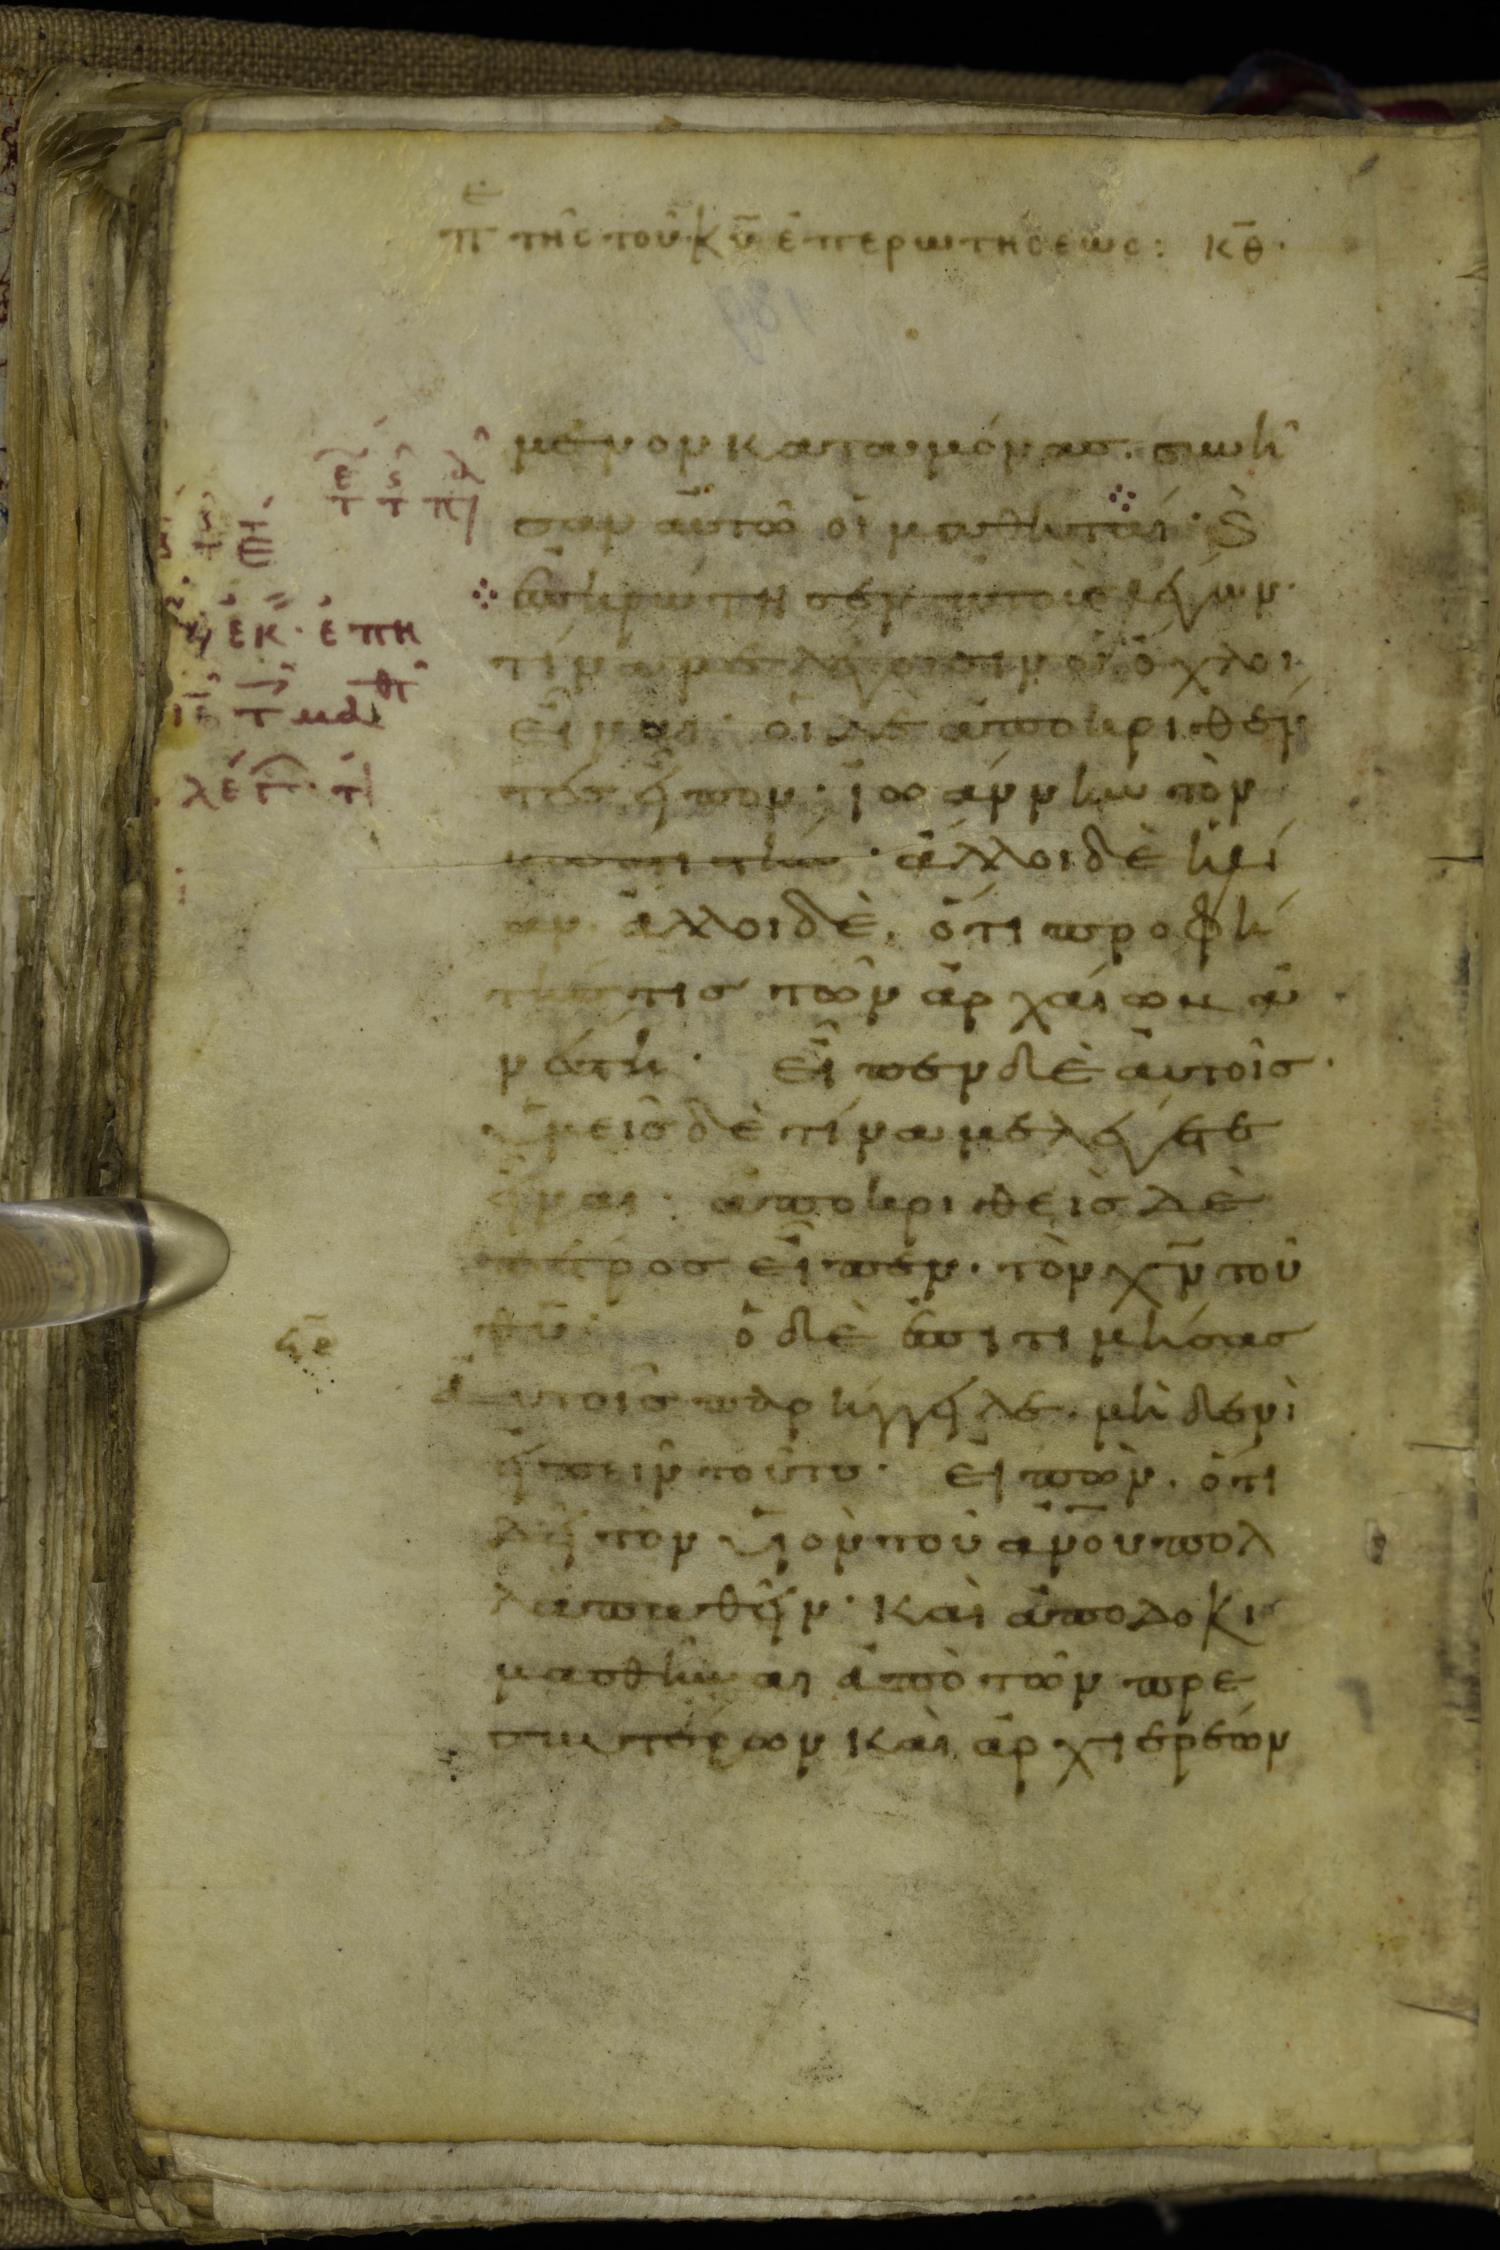 πε τῆς τοῦ κ̅υ̅ ἐπερωτήσεως: κ̅θ̅·
μενον καταμόνας· συνῆ
σαν αὐτῶ οἱ μαθηταί· κ(αὶ)
ἐπηρώτησεν αὐτοὺς λέγων·
τίνα με λέγουσιν οἱ ὄχλοι
εἶναι· οἱ δὲ ἀποκριθέν
τες εἶπον· ἰωάννην τὸν
βαπτιστὴν· ἄλλοι δὲ ἠλί
αν· ἄλλοι δὲ, ὅτι προφή
της τις τῶν ἀρχαίων ἀ
νέστη· εἶπεν δὲ αὐτοῖς·
ὑμεῖς δὲ τίνα με λέγετε
εἶναι· ἀποκριθεὶς δὲ
πέτρος εἶπεν· τὸν χ̅ν̅ τοῦ
θ̅υ̅· ὁ δὲ ἐπιτιμήσας
ϟε
αὐτοῖς παρήγγειλε· μηδενὶ
εἰπεῖν τοῦτο· εἰπὼν· ὅτι
δεῖ τὸν υἱὸν τοῦ α̅ν̅ο̅υ̅ πολ
λὰ παθεῖν· καὶ ἀποδοκι
μασθῆναι ἀπὸ τῶν πρε
σβυτέρων καὶ ἀρχιερέων